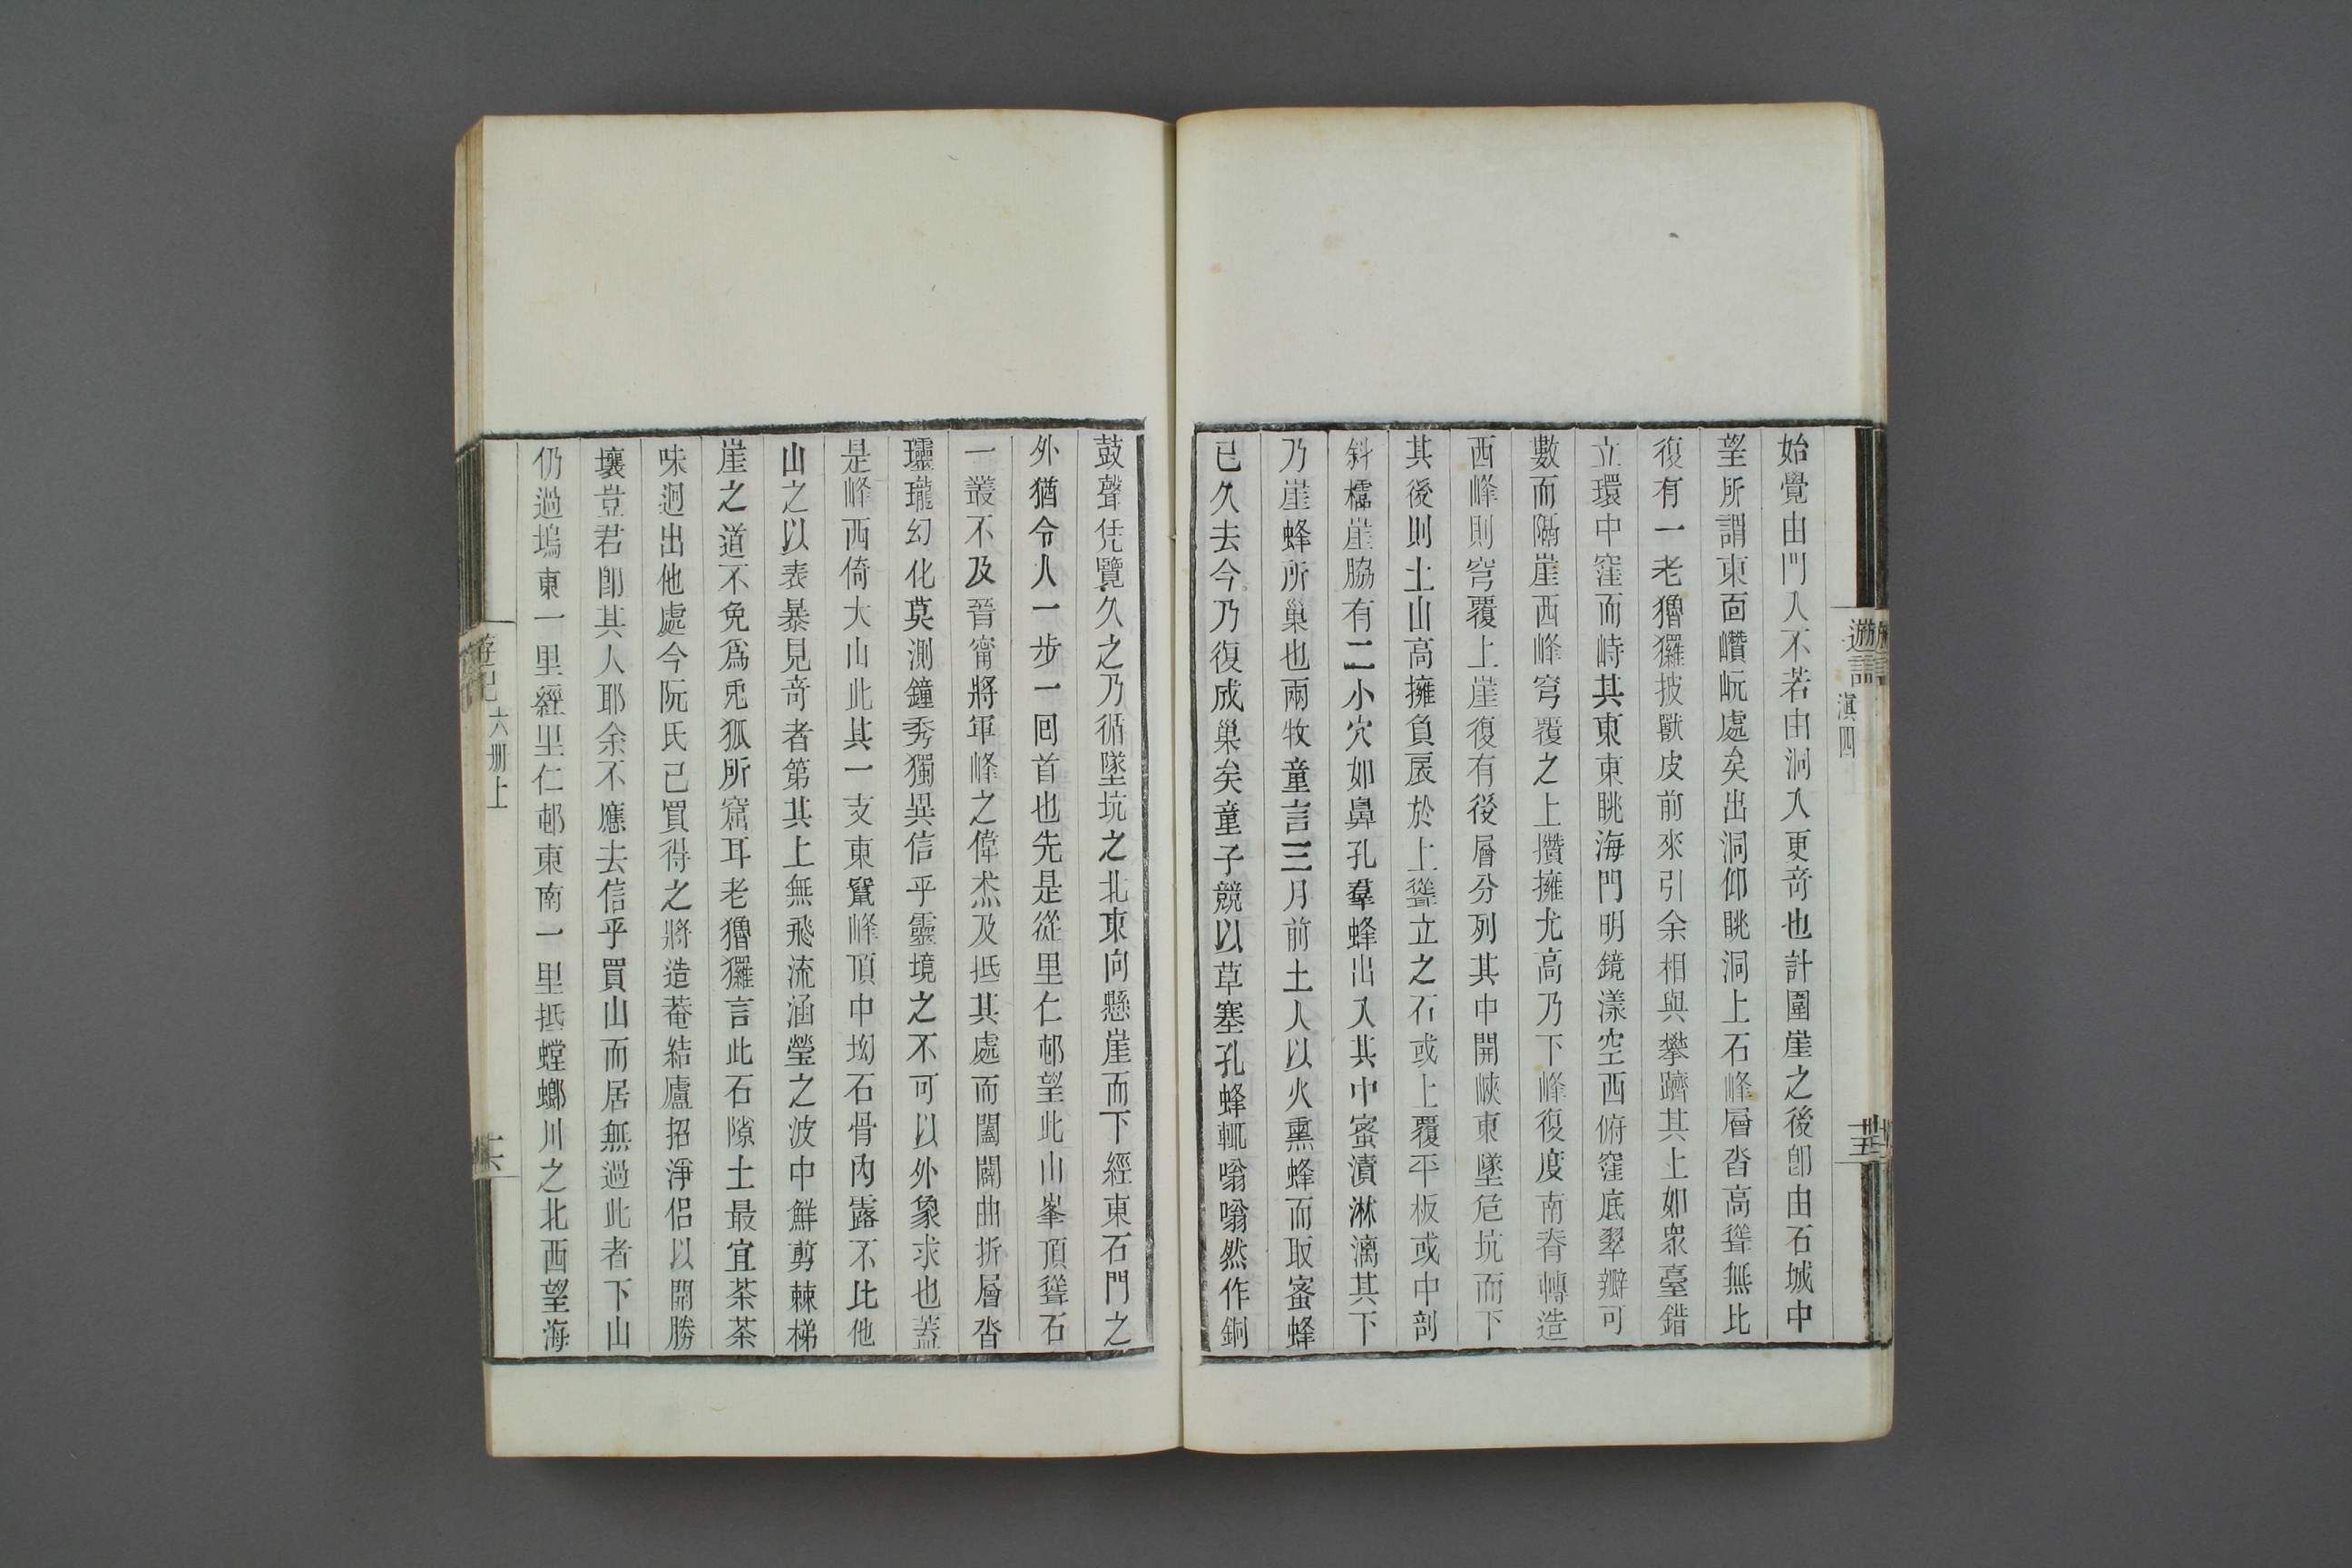 遊記 滇四 廿五
始覺由門入不若由洞入更奇也計圍崖之後卽由石城中
望所謂東面巑岏處矣出洞仰眺洞上石峰層沓高聳無比
復有一老玀玀披獸皮前來引余相與攀躋其上如衆臺錯
立環中窪而峙其東東眺海門明鏡漾空西俯窪底翠瓣可
數而隔崖西峰穹覆之上攢擁尤高乃下峰復度南脊轉造
西峰則穹覆上崖復有後層分列其中開峽東墜危坑而下
其後則土山高擁負扆於上聳立之石或上覆平板或中剖
斜櫺崖脇有二小穴如鼻孔羣蜂出入其中蜜漬淋漓其下
乃崖蜂所巢也兩牧童言三月前土人以火熏蜂而取蜜蜂
已久去今乃復成巢矣童子競以草塞孔蜂輒嗡嗡然作銅
鼓聲凭覽久之乃循墜坑之北東向懸崖而下經東石門之
外猶令人一步一囘首也先是從里仁邨望此山峯頂聳石
一叢不及晉甯將軍峰之偉杰及抵其處而闔闢曲折層沓
玲瓏幻化莫測鐘秀獨異信乎靈境之不可以外象求也蓋
是峰西倚大山此其一支東竄峰頂中坳石骨內露不比他
山之以表暴見奇者第其上無飛流涵瑩之波中鮮剪棘梯
崖之道不免爲兎狐所窟耳老玀玀言此石隙土最宜茶茶
味迥出他處今阮氏已買得之將造菴結廬招淨侶以開勝
壤豈君卽其人耶余不應去信乎買山而居無過此者下山
仍過塢東一里經里仁邨東南一里抵螳螂川之北西望海
遊記 六册上